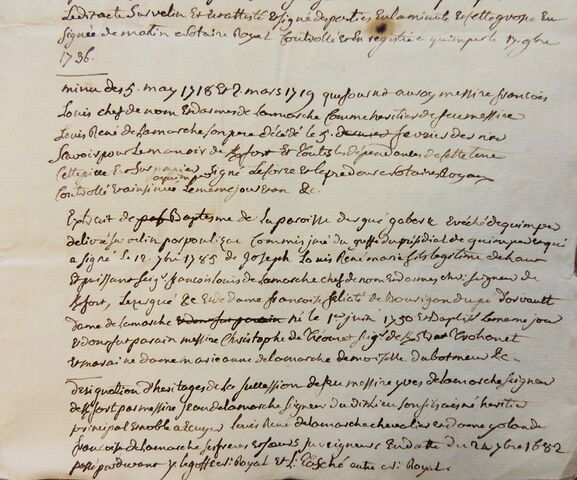 Ledit acte sur velin Et
Signée de matin notaire Royal Controllé et En registrée a quimper le 17 9bre
1736.
minu des 5. may 1718 et 2. mars 1719 que fournit au roy messire françois
Louis chef de nom Et darmes de Lamarche Comme heritier de feu messire
Louis René de Lamarche son pere décédé le 5. dernier fevrier dernier
Scavoir pour Le manoir de Kfort et touts les dependances de Cette terre
Cette piece est Sur papier signé Leforze et Lepredour notaires Royaux
Controllé et insinué Le meme jour et an &c.
Extrait de Baptesme de La paroisse dergué gaberic Evêché de quimper
delivré sur velin par Commis juré du greffe du présidial de quimper qui
a signé Le 12. 7bre 1785 de Joseph Louis René marie fils legitime de haut
et puissant Seigr. francois Louis de Lamarche chef de nom Et darmes, chr. Seigneur de
Kfort, Lezergué &c et de dame francoise felicité de Bourigan dupé Dorvault
dame de Lamarche né le 1er juin 1750 et baptisé Le meme jour
et don fut parain messire Christophe de Seigr. de
et maraine dame marie anne de Lamarche demoiselle du bormeur &c
designation d'heritages de La succession de feu messire yves de Lamarche Seigneur
de Kfort par messire jean de Lamarche Seigneur dudit Lieu son fils aisné heritier
principal et noble a Ecuyer Louis René de Lamarche chevalier et dame yolande
francoise de Lamarche ses freres et Soeurs juveigneurs En datte du 24 7bre 1682
passé par devant y le goff nore Royal et autre nore Royal.